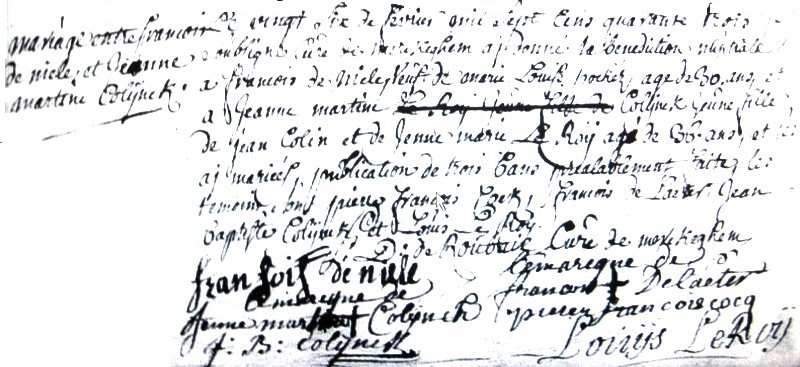 mariage entre francois
de niele, et Jeanne
martine Colijnck
vingt six de fevrier mil sept cens quarante trois
soubsigné Curé de merckeghem aj donné la benediction nuptiale
a francois de niele, veuf de marie Louise age de 30 ans, et
a Jeanne martine le Roy jeune fille de Colijnck jeune fille
de jean Colin et de Jenne marie Le Roy agé de 36 ans, et les
aj mariés, publication de trois bans prealablement faite, les
temoins sont pierre francois francois de Laeter, Jean
baptiste Colijnck et Louis Le Roy.
D: de Roubaix Curé de merckeghem
franſois de niele
Lemarcque de
Jenne mar + Colijnck
J: B: Colijnck
Lemarcque de
francois + Delaeter
pieer francois cocq
Louijs LeRoy